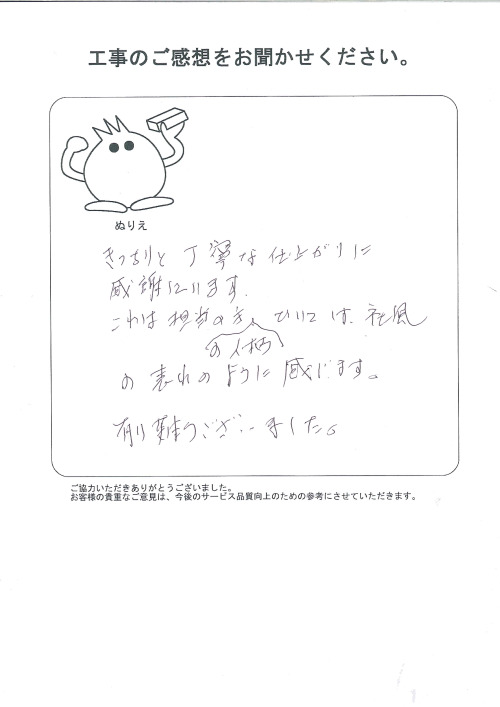 工事のご感想をお聞かせください。
ぬりえ
きっちりと丁寧な仕上がりに
感謝しています。
これは担当の方、ひいては、社風
の人柄
の表れのように感じます。
有り難うございました。
ご協力いただきありがとうございました。
お客様の貴重なご意見は、今後のサービス品質向上のための参考にさせていただきます。